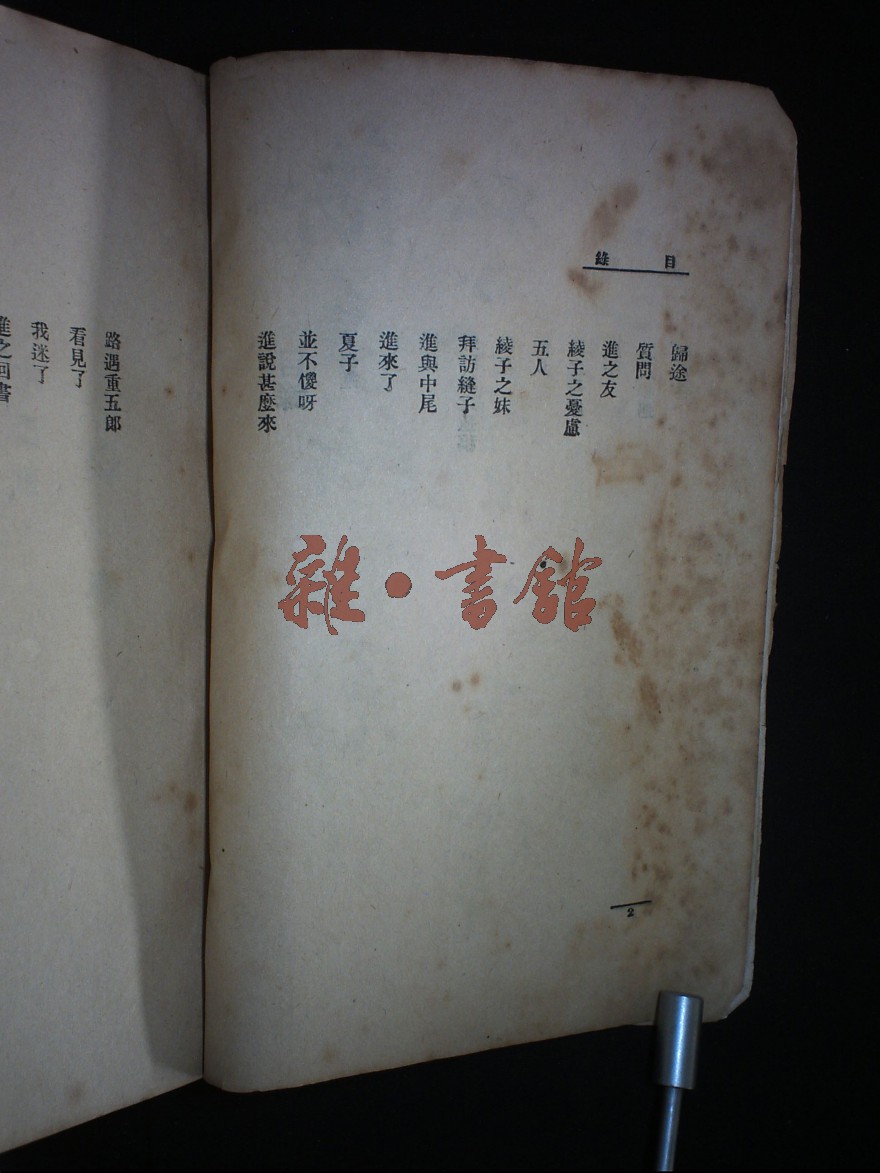 目錄
歸途
質問
進之友
綾子之憂慮
五人
綾子之妹
拜訪縫子
進與中尾
進來了
夏子
並不傻呀
進說甚麼來
2
路遇重五郎
看見了
我迷了
進之回書
雜·書館